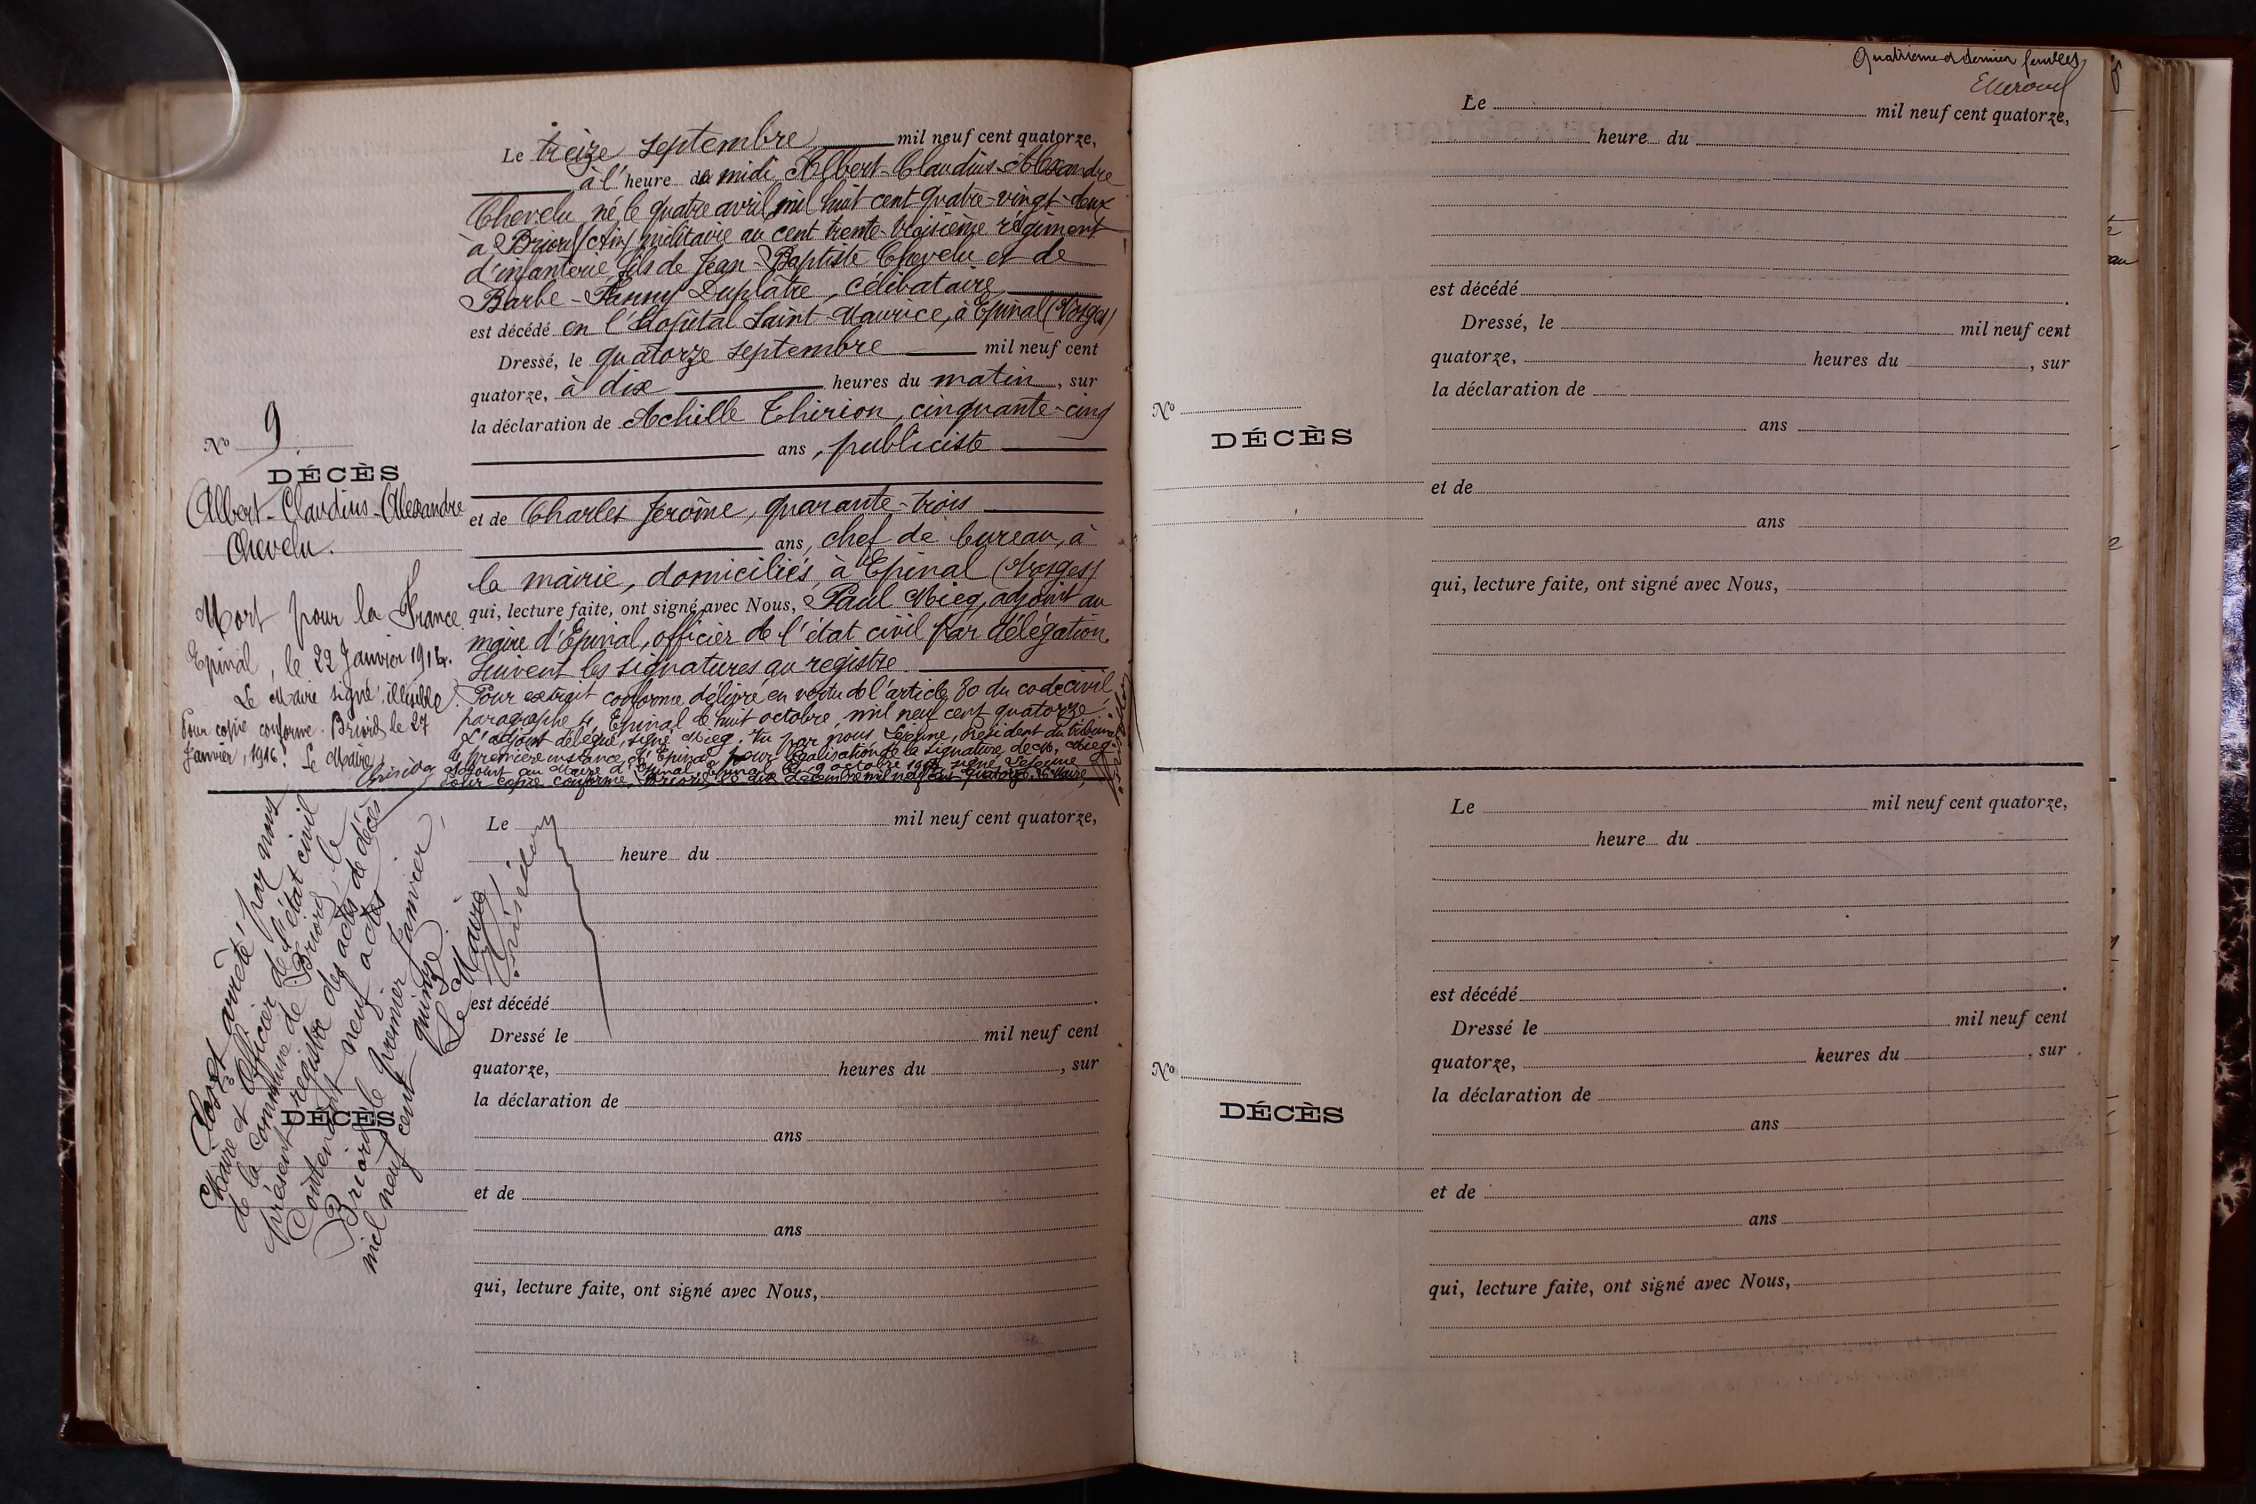 Le treize septembre mil neuf cent quatorze,
à l'heure de midi Albert-Claudius-Alexandre
Chevelu, né le quatre avril mil huit cent quatre-vingt-deux
à Briord (Ain) militaire au cent trente-troisième régiment
d'infanterie, fils de Jean-Baptiste Chevelu et de
Barbe-Fanny Duplâtre, célibataire
est décédé en l'hôpital Saint-Maurice, à Epinal (Vosges)
Dressé, le quatorze septembre mil neuf cent
quatorze, à dix heures du matin, sur
la déclaration de Achille Thirion, cinquante-cinq
ans, publiciste
et de Charles Jérôme, quarante-trois
ans, chef de bureau, à
la mairie, domiciliés à Epinal (Vosges)
qui, lecture faite, ont signé avec Nous, Paul Mieg, adjoint au
maire d'Epinal, officier de l'état civil par délégation
Suivent les signatures au registre.
Pour extrait conforme délivré en vertu de l'article 80 du code civil
paragraphe 4, Epinal le huit octobre, mil neuf cent quatorze.
L'adjoint délégué, signé Mieg. Vu par nous Lejeune, Président du tribunal
de première instance, d'Epinal pour légalisation de la signature de M. Mieg
adjoint au Maire d'Epinal. Epinal le 9 octobre 1914 signé Lejeune
Pour copie conforme, Briord, le dix décembre mil neuf cent quatorze. Le Maire,
No 9
DÉCÈS
Albert-Claudius-Alexandre
Chevelu.
Mort pour la France.
Epinal, le 22 Janvier 1916.
Le Maire signé: illisible
Pour copie conforme. Briord le 27
Janvier, 1916. Le Maire,
Clos et arrêté par nous
Maire et Officier de l'état civil
de la commune de Briord, le
présent registre des actes de décès
Contenant neuf actes
Briord le premier Janvier
mil neuf cent quinze.
Le Maire
Le mil neuf cent quatorze,
heure du
est décédé
Dressé le mil neuf cent
quatorze, heures du , sur
DÉCÈS
la déclaration de
ans
et de
ans
qui, lecture faite, ont signé avec Nous,
Quatrième et dernier
Le mil neuf cent quatorze,
heure du
est décédé
Dressé, le mil neuf cent
quatorze, heures du , sur
la déclaration de
No
DÉCÈS
ans
et de
ans
qui, lecture faite, ont signé avec Nous,
Le mil neuf cent quatorze,
heure du
est décédé
Dressé le mil neuf cent
quatorze, heures du , sur
No
DÉCÈS
la déclaration de
ans
et de
ans
qui, lecture faite, ont signé avec Nous,